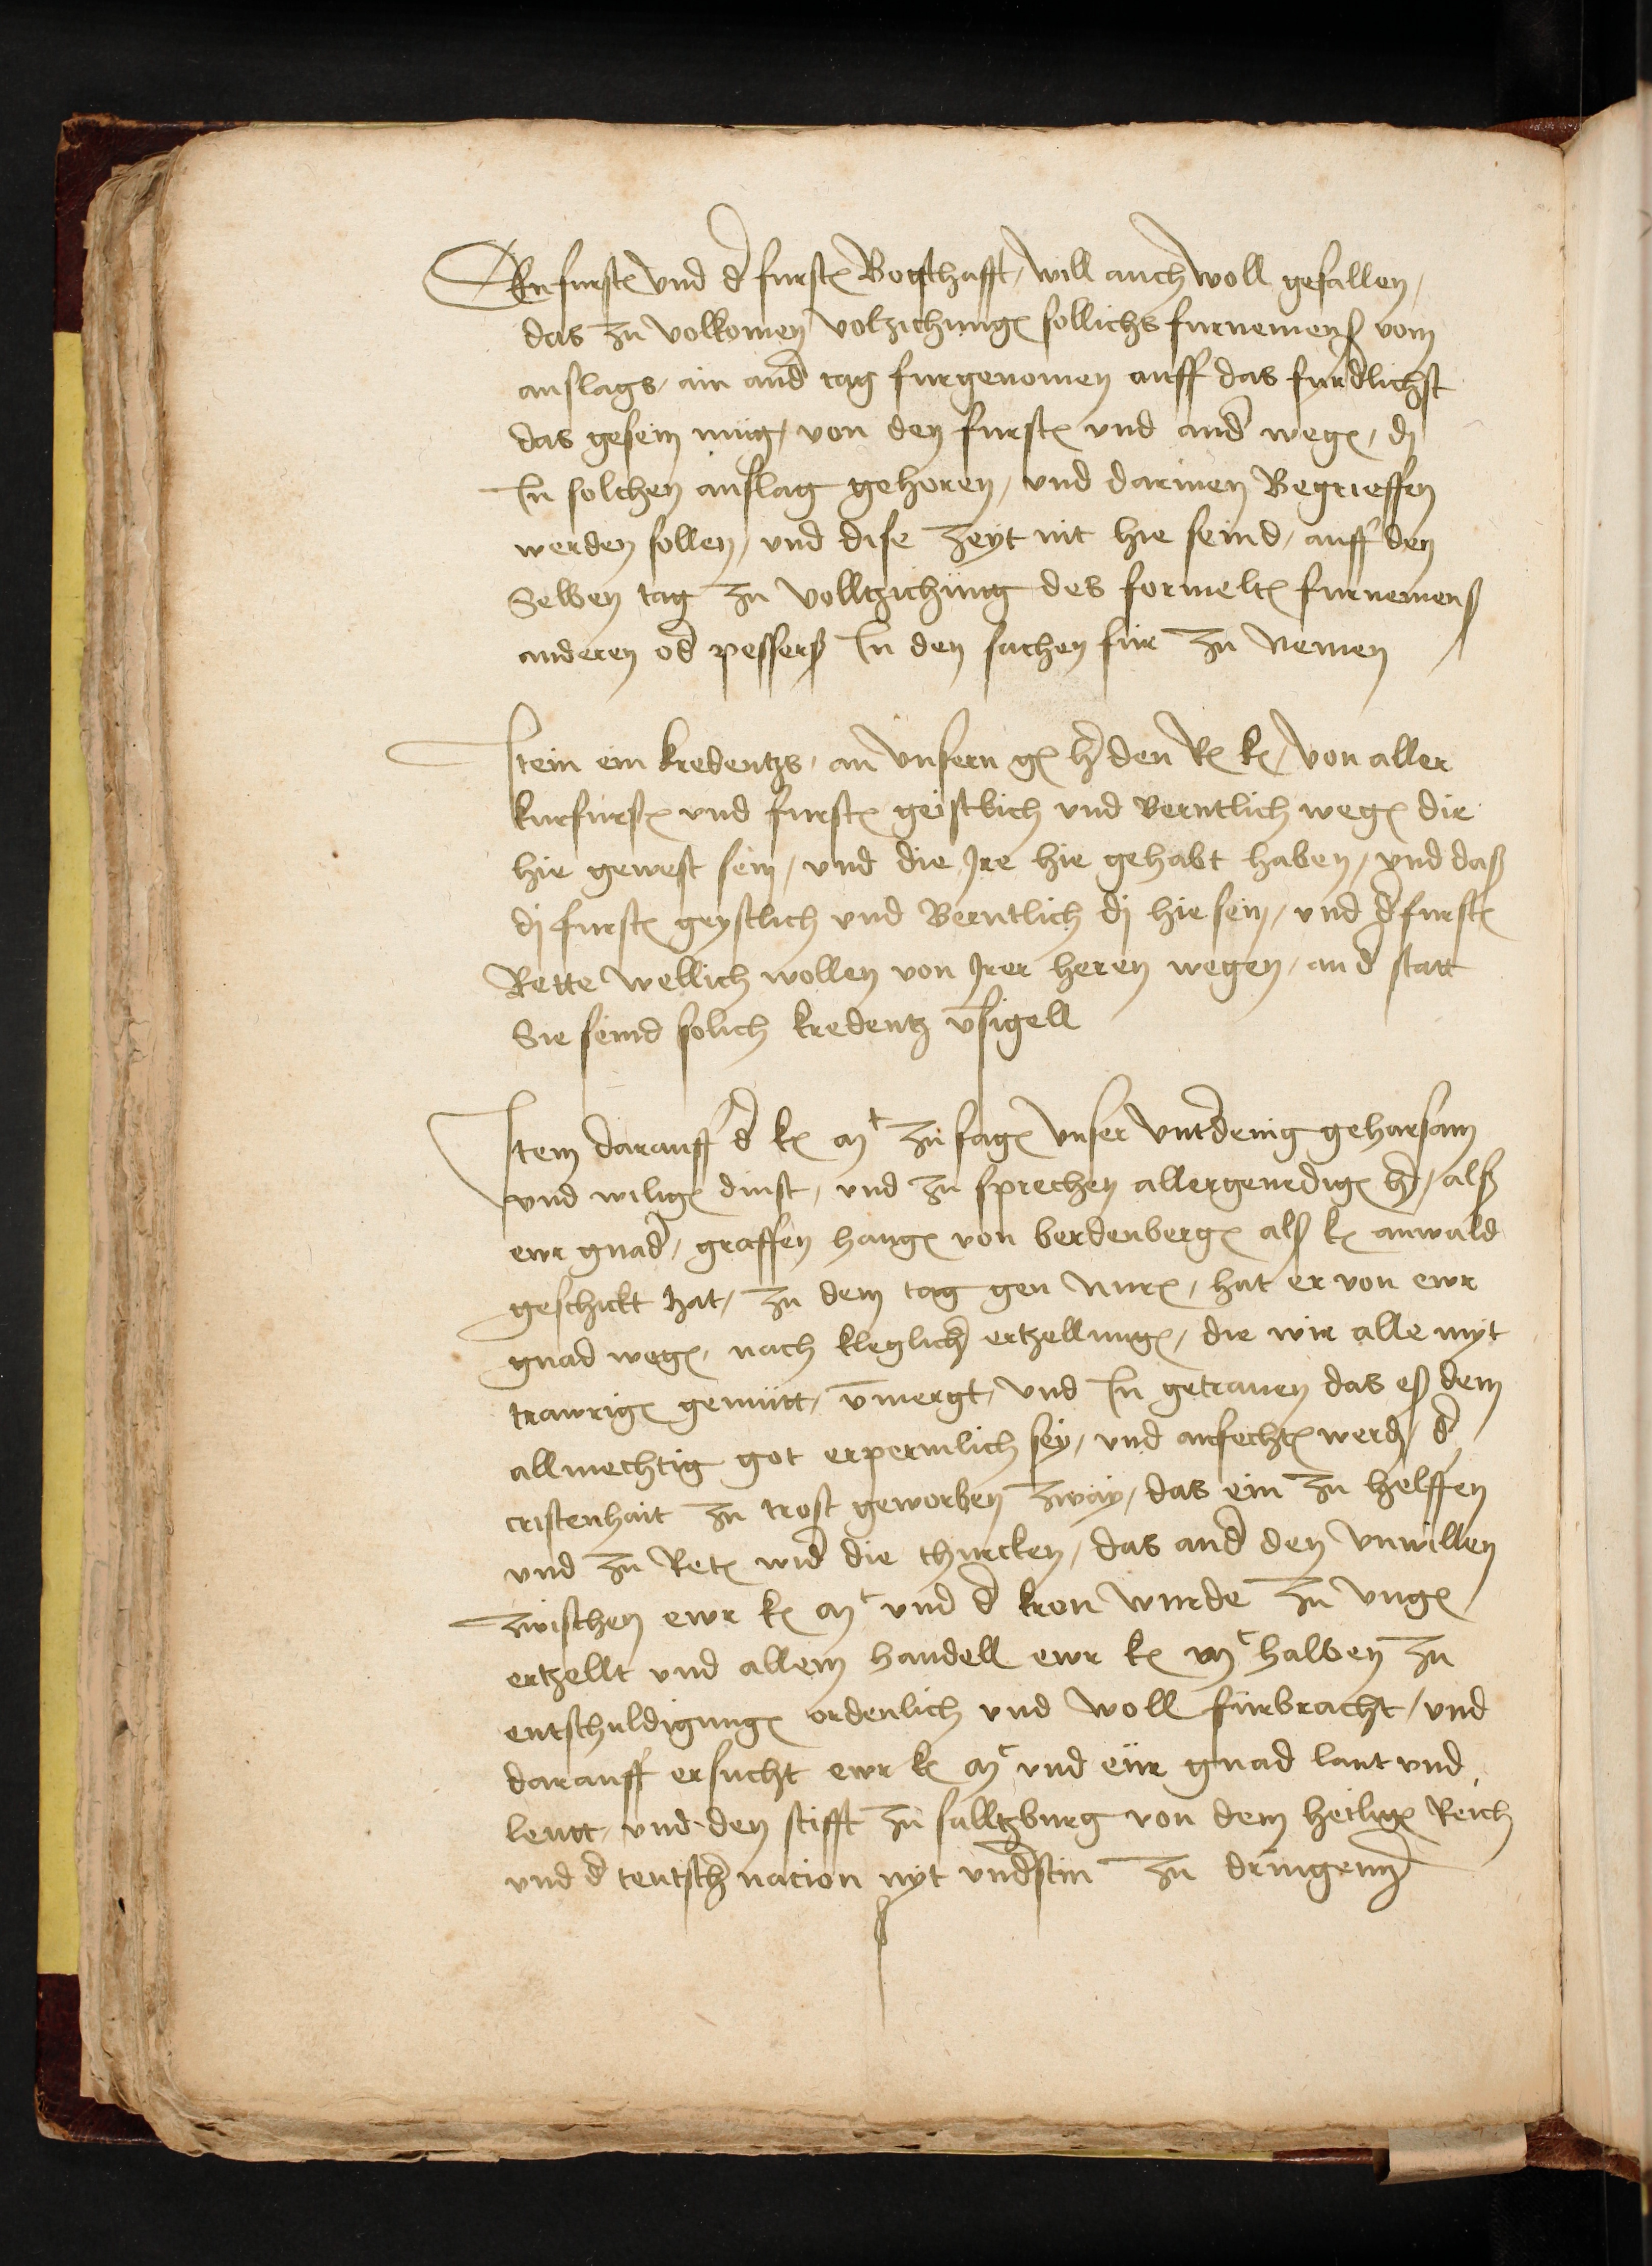 Kurfurst(en) vnd d(er) furst(en) Botschafft, will auch woll gefallen,
das zu volkomen volzichung(en) sollichs furnemens vom
anslags, ain and(er) tag furgenomen auff das furd(er)lichst
das gesein mug, von den furst(en) vnd and(er) weg(en), dj
In solchen anslag gehoren, vnd darinen Begrieffen
werden sollen, vnd dise zeyt nit hie seind, auff den
Selben tag zu volltzichung des formelt(en) furnemens
anderen od(er) pessers In den sachen fur zu nemen
Item ein kredentzs, an vnsern g(nedigen) h(er)r(e)n den R(omischen) k(eiser), von aller
kurfurst(en) vnd furst(en) geistlich vnd Berntlich weg(en) die
hie gewest sein, vnd die Ire hie gehabt haben, vnd das
dj furst(en) geystlich vnd Berntlich dj hie sein, vnd d(er) furst(en)
Rette wellich wollen von Irer heren wegen, an d(er) statt
Sie seind solich kredentz v(er)sigell
Item darauff d(er) k(eiserlichen) M(aieste)t zu sag(en) vnser vnt(er)denig gehorsam
vnd willig(en) dinst, vnd zu sprechen allergenedig(ster) h(er)r, als
ewr gnad(en), graffen haug(en) von berdenberg(en) als k(eiserlichen) anwald
geschickt hat, zu dem tag gen nur(enberg), hat er von ewr
gnad weg(en), nach kleglich(er) ertzellung(en), die wir alle myt
trawrig(en) gemutt, v(er)mergt, vnd In getrauen das es dem
allmechtig got erpermlich sey, vnd anfecht(en) werd, d(er)
cristenhait zu trost geworben zway, das ein zu helffen
vnd zu Ret(en) wid(er) die thurcken, das and(er) den vnwillen
zwischen ewr k(eiserlichen) M(aieste)t vnd d(er) kron wurde zu vng(ern)
ertzellt vnd allem handell ewr k(eiserlichen) M(aieste)t halben zu
entschuldigung(en) ordenlich vnd woll furbracht, vnd
darauff ersucht ewr k(eiserlich) M(aieste)t vnd eur gnad lant vnd
leutt, vnd den stifft zu salltzburg von dem heilig(en) Reich
vnd d(er) teutsch(en) nacion nyt vnd(er)stin zu dringenn